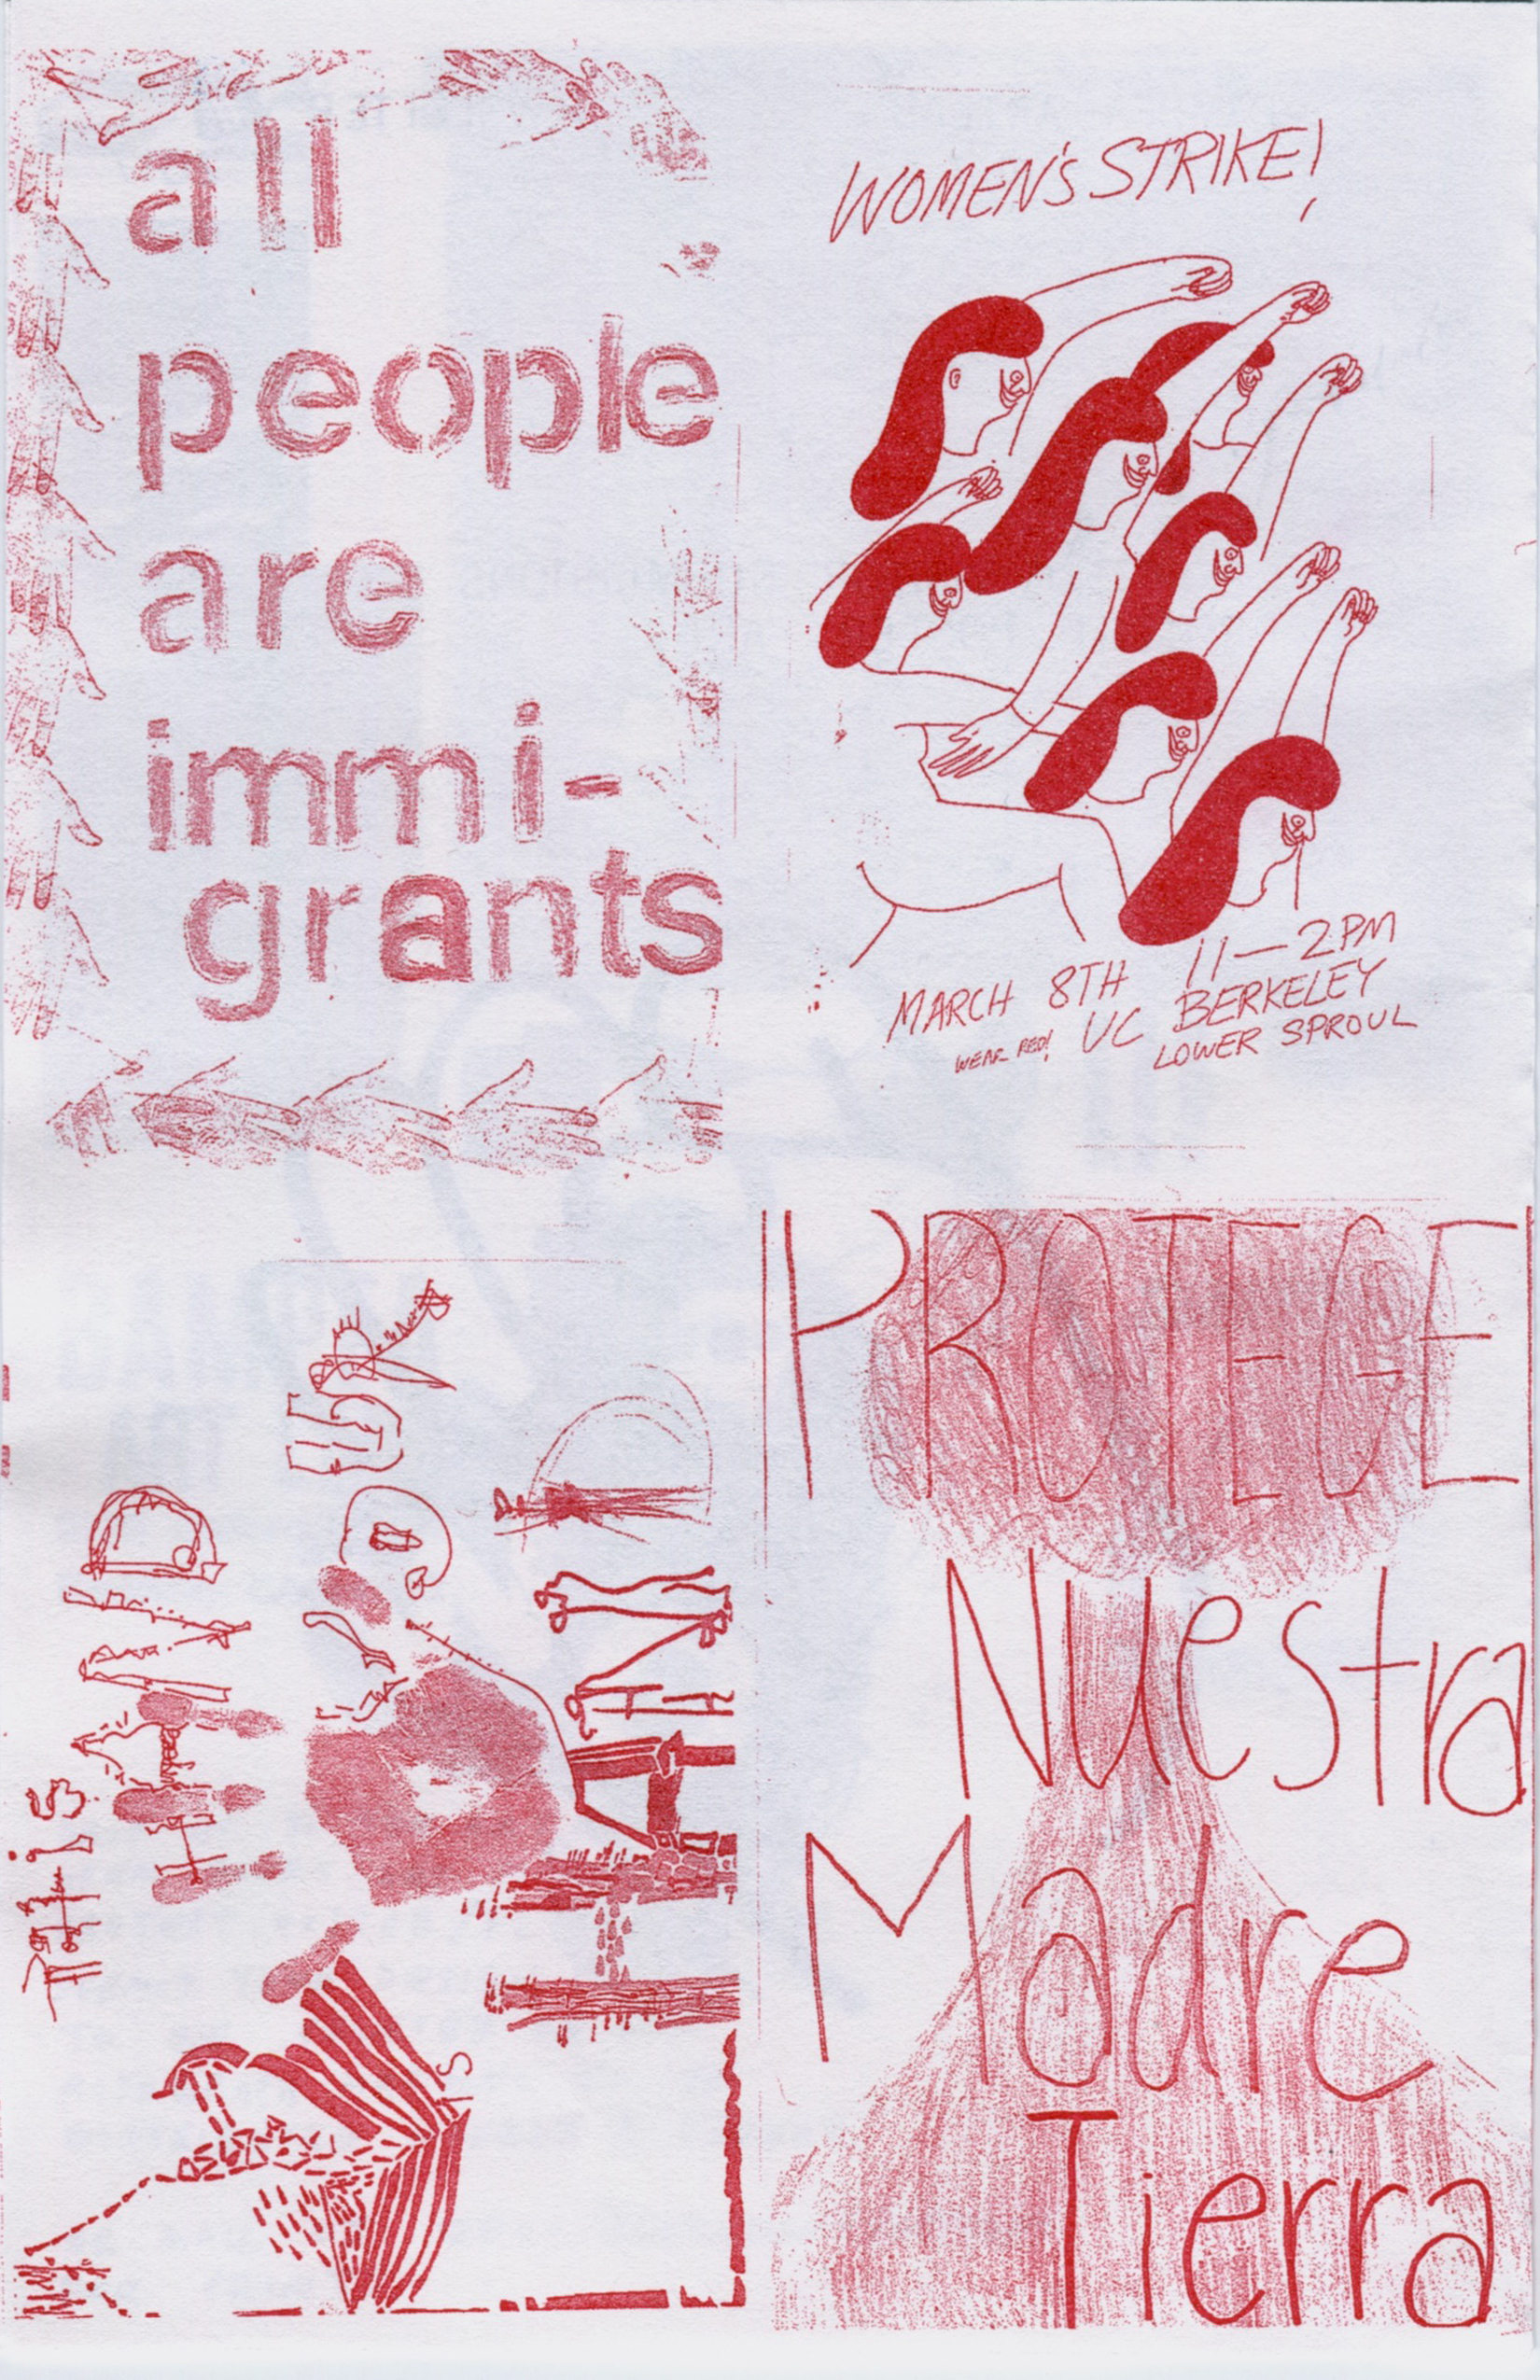 all
people
are
immi-
grants
WOMEN'S STRIKE!
MARCH 8TH 11-2PM
WEAR RED! UC BERKELEY
LOWER SPROUL
is
HAND
UR
HAND
PROTEGE
Nuestra
Madre
Tierra